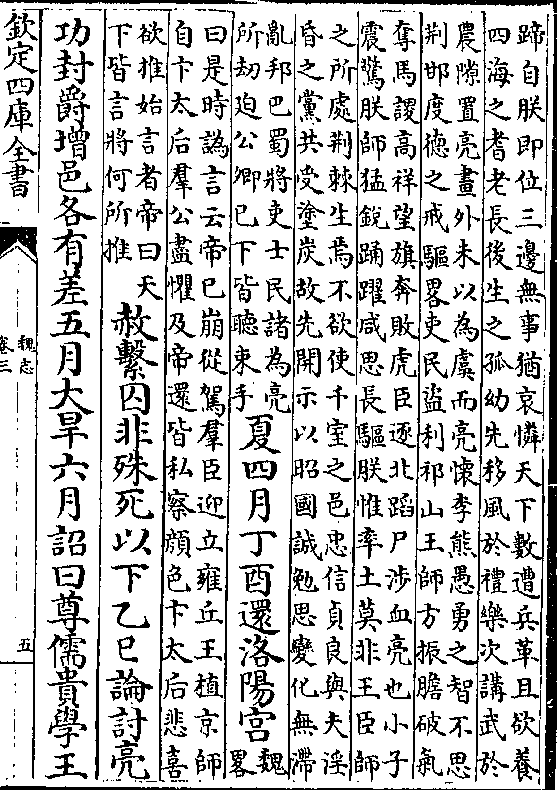 蹄自朕即位三邊無事猶哀憐天下數遭兵革且欲養
四海之耆老長後生之孤幼先移風於禮樂次講武於
農隙置亮畫外未以為虞而亮懷李熊愚勇之智不思
荆邯度德之戒驅畧吏民盜利祁山王師方振膽破氣
奪馬謖高祥望旗奔敗虎臣逐北蹈尸涉血亮也小子
震驚朕師猛銳踊躍咸思長驅朕惟率土莫非王臣師
之所處荆棘生焉不欲使千室之邑忠信貞良與夫淫
昏之黨共受塗炭故先開示以昭國誠勉思變化無滯
亂邦巴蜀將吏士民諸為亮
所劫迫公卿已下皆聽束手
夏四月丁酉還洛陽宮
魏
畧
曰是時譌言云帝已崩從駕羣臣迎立雍丘王植京師
自卞太后羣公盡懼及帝還皆私察顔色卞太后悲喜
欲推始言者帝曰天
下皆言將何所推
赦繫囚非殊死以下乙巳論討亮
功封爵增邑各有差五月大旱六月詔曰尊儒貴學王
欽定四庫全書
魏志
卷三
五